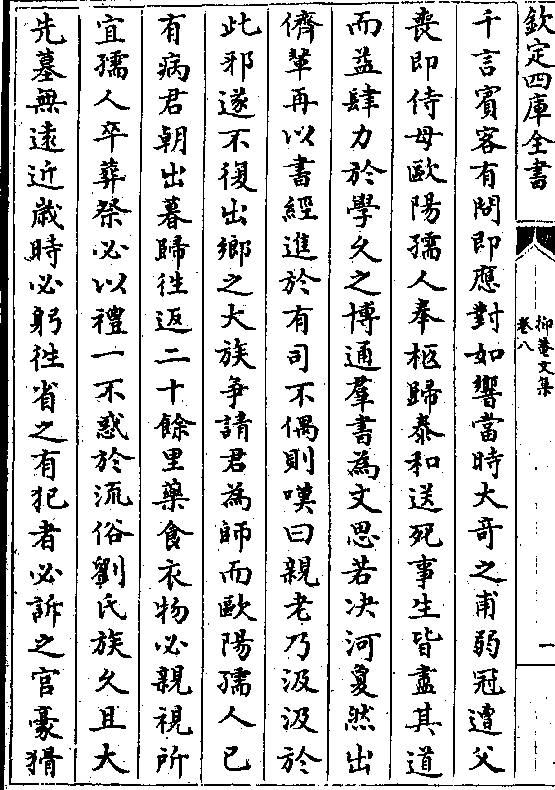 欽定四庫全書
抑菴文集
卷八
一
千言賓客有問即應對如響當時大竒之甫弱冠遭父
喪即侍母歐陽孺人奉柩歸泰和送死事生皆盡其道
而益肆力於學久之博通羣書為文思若决河夐然出
儕軰再以書經進於有司不偶則嘆曰親老乃汲汲於
此邪遂不復出鄉之大族争請君為師而歐陽孺人已
有病君朝出暮歸徃返二十餘里藥食衣物必親視所
宜孺人卒葬祭必以禮一不惑於流俗劉氏族久且大
先墓無逺近嵗時必躬徃省之有犯者必訴之官豪猾